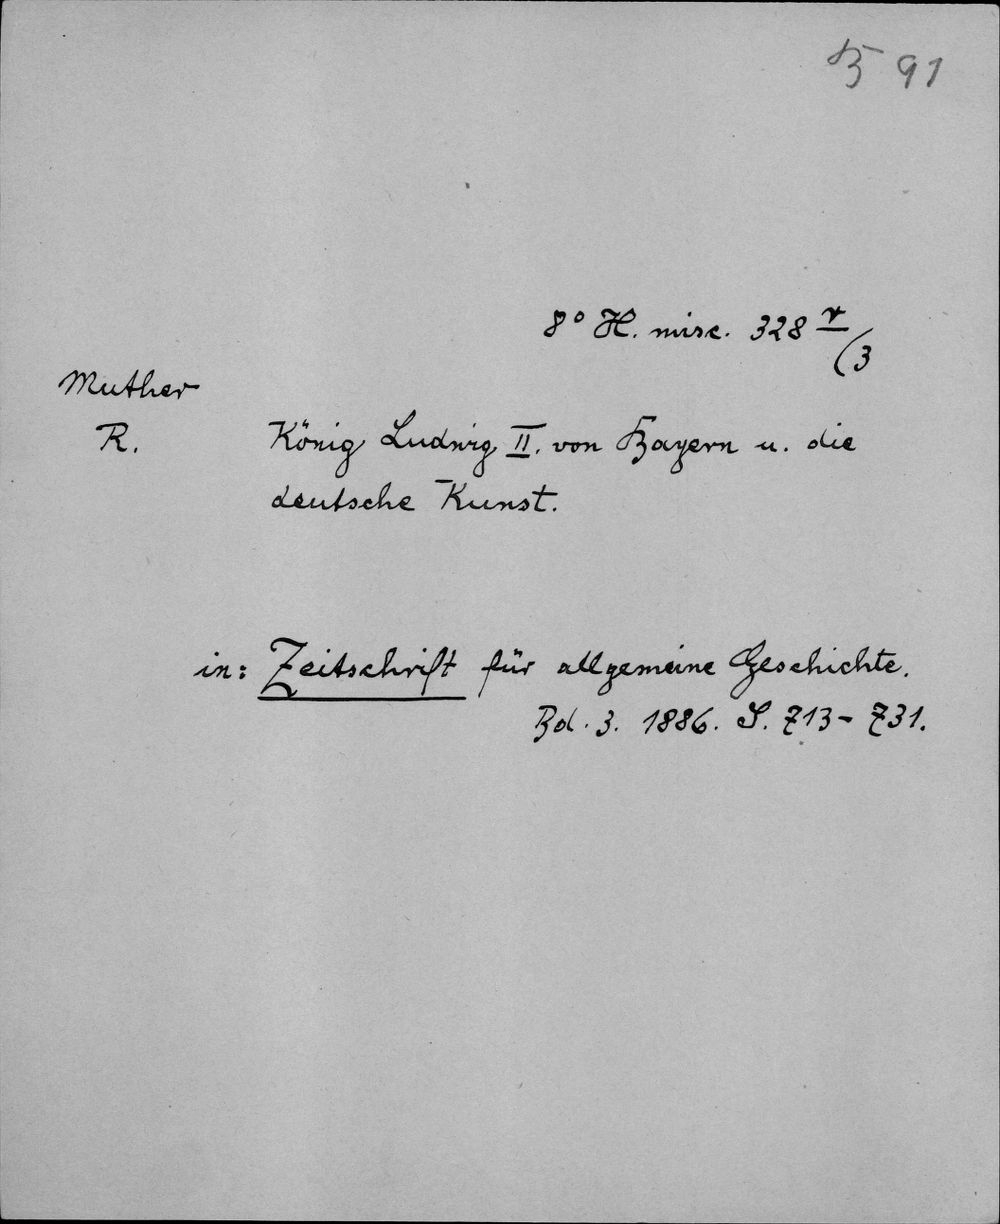 B 91
8° H. misc. 328 r/(3
Muther
R. König Ludwig II. von Bayern u. die
deutsche Kunst.
in: Zeitschrift für allgemeine Geschichte.
Bd. 3. 1886. S. 713-731.